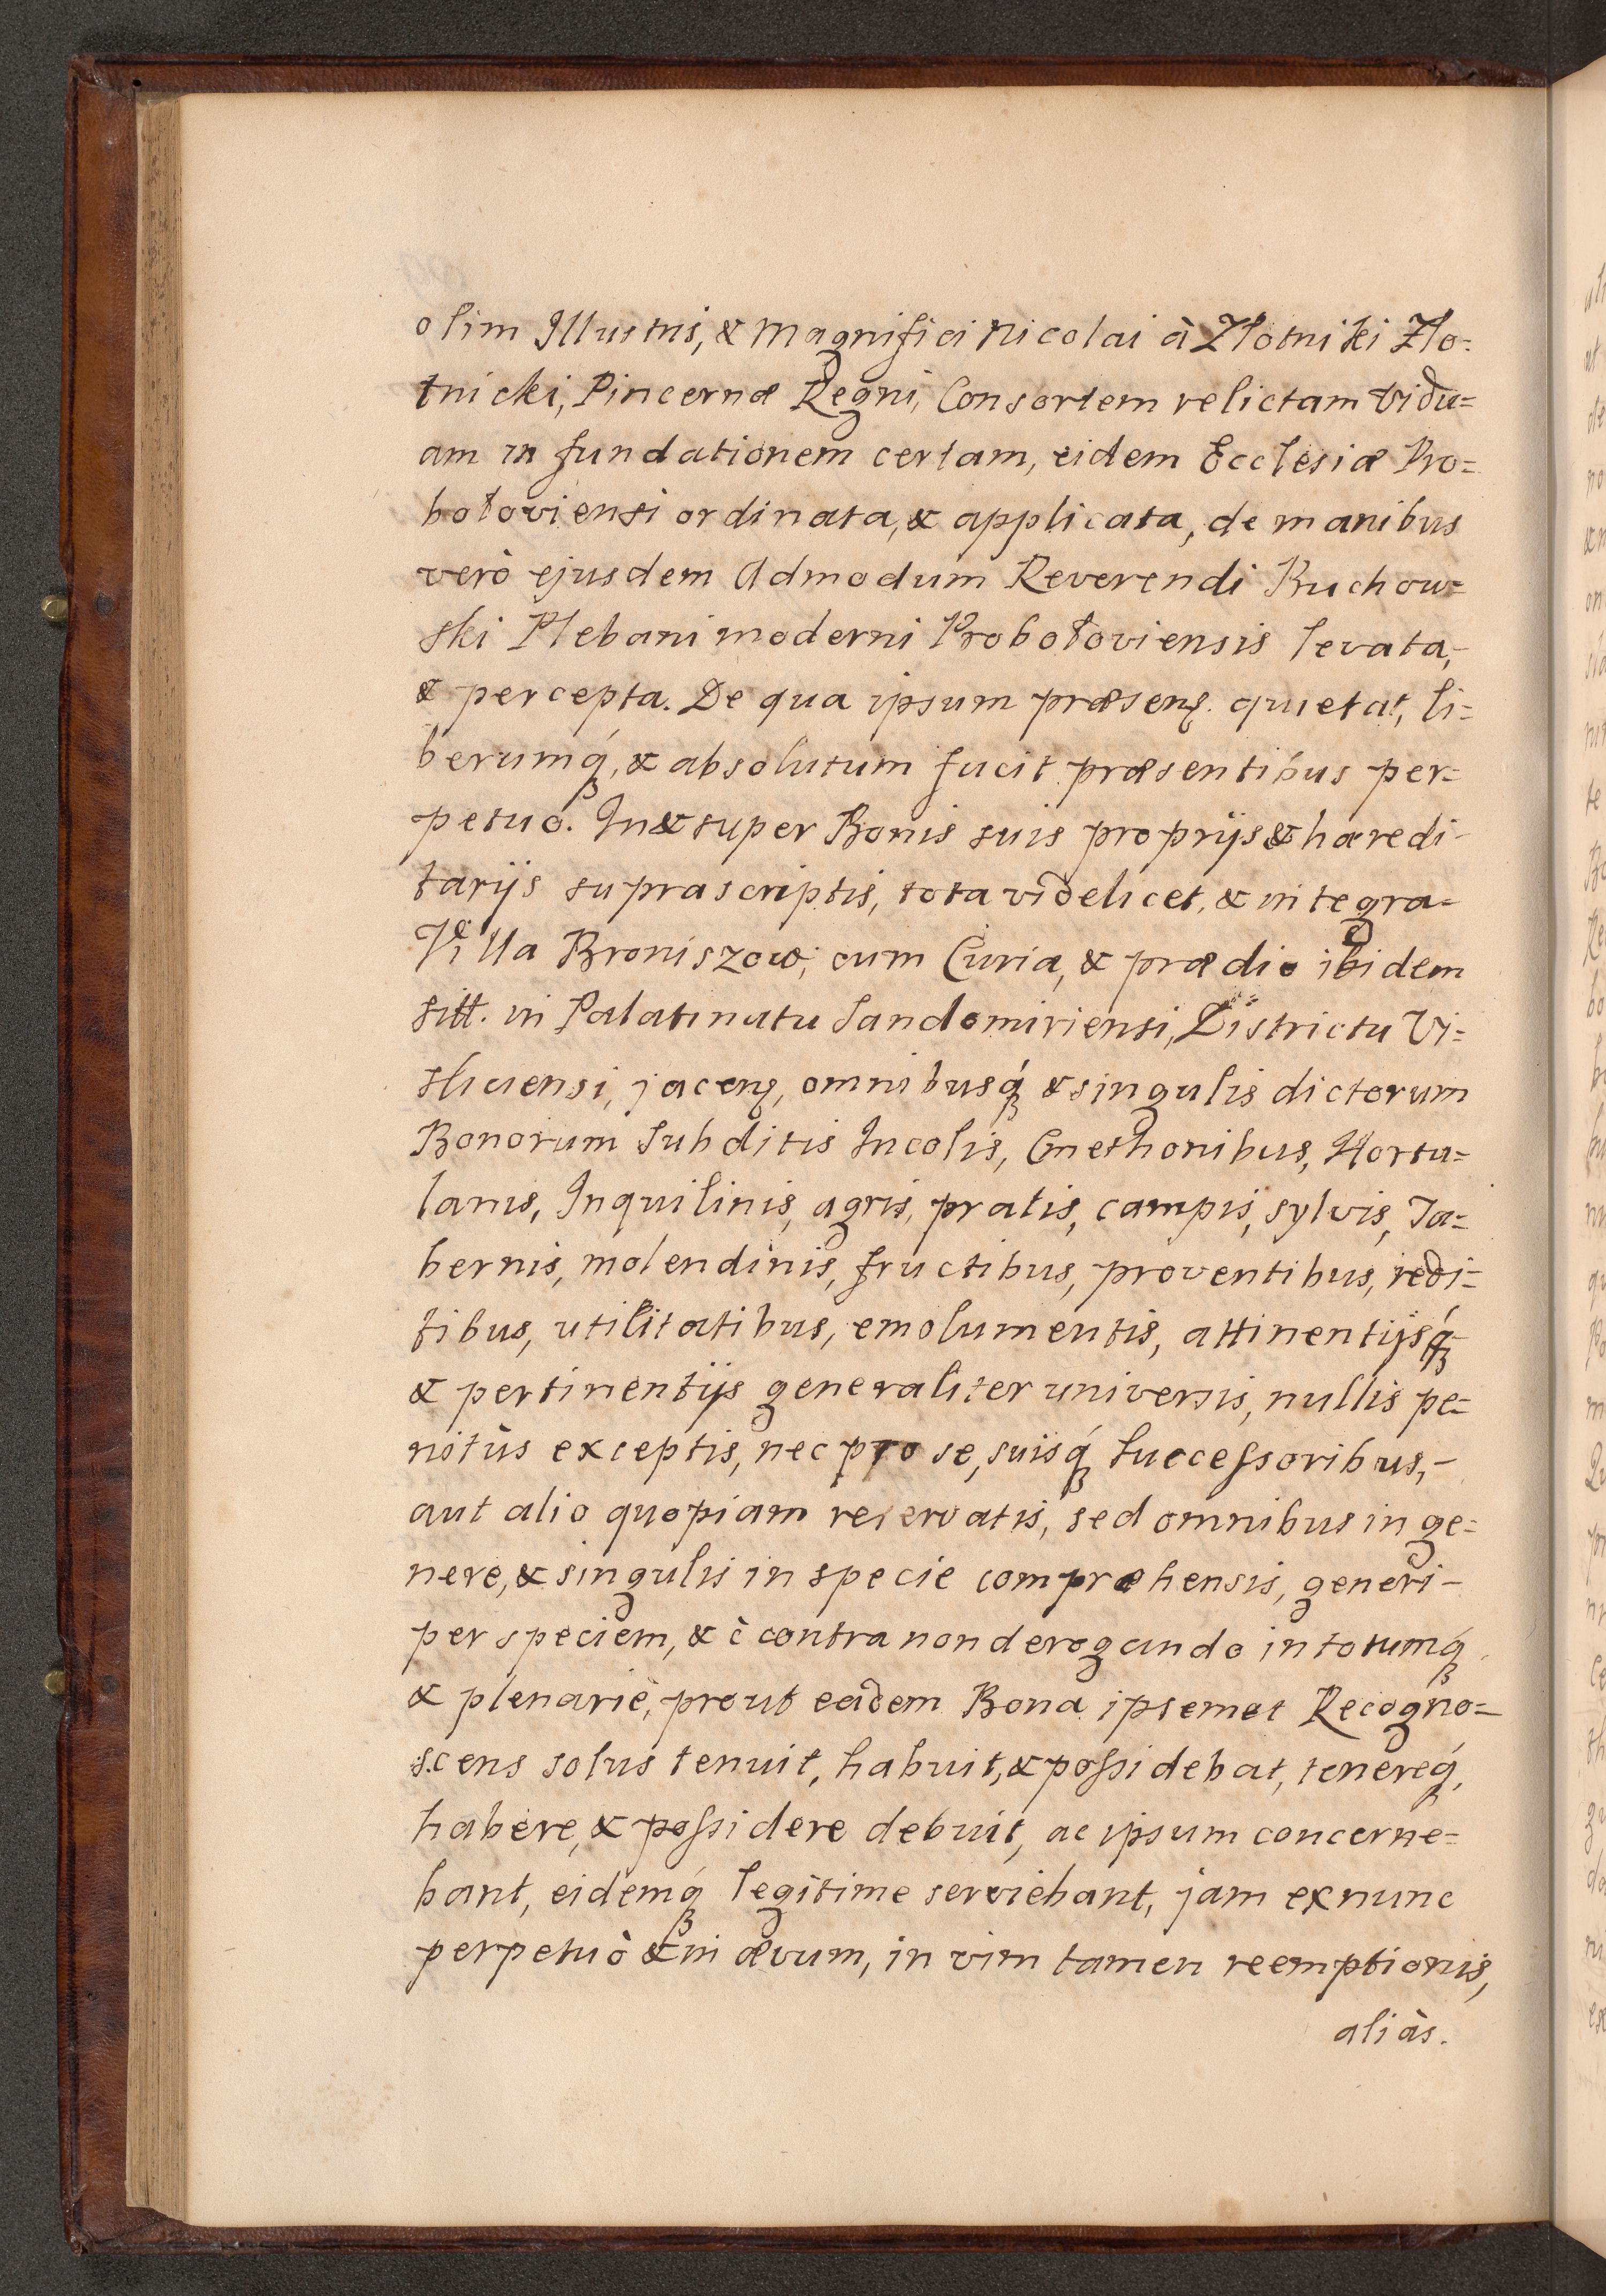 olim Illustris, & Magnifici Nicolai à Złotniki Zło=
tnicki, Pincernæ Regni, Consortem relictam vidu=
am in fundationem certam, eidem Ecclesiæ Pro=
bołoviensi ordinata, & applicata, de manibus
verò ejusdem Admodum Reverendi Ruchow=
ski Plebani moderni Probołoviensis levata,
& percepta. De qua ipsum præsenꝫ. quietat, li=
berumq́ꝫ, & absolutum facit præsentibus per=
petuò. In & super Bonis suis proprijs & hæredi-
tarijs suprascriptis, tota videlicet, & integra-
Villa Broniszow, cum Curia, & prædio ibidem
sitt. in Palatinatu Sandomiriensi, Districtu Vi=
sliciensi, jacenꝫ, omnibusq́ꝫ & singulis dictorum
Bonorum Subditis Incolis, Cmethonibus, Hortu=
lanis, Inquilinis, agris, pratis, campis, sylvis, Ta=
bernis, molendinis, fructibus, proventibus, redi=
tibus, utilitatibus, emolumentis, attinentijsq́ꝫ
& pertinentijs generaliter universis, nullis pe=
nitùs exceptis, nec pro se, suisq́ꝫ successoribus,-
aut alio quopiam reservatis, sed omnibus in ge=
nere, & singulis in specie comprehensis, generi-
per speciem, & è contra non derogando in totumq́ꝫ
& plenariè, prout eadem Bona ipsemet Recogno=
scens solus tenuit, habuit, & possidebat, tenereq́ꝫ,
habere, & possidere debuit, ac ipsum concerne=
bant, eidemq́ꝫ legitime serviebant, jam exnunc
perpetuò & in ævum, in vim tamen reemptionis,
aliàs.